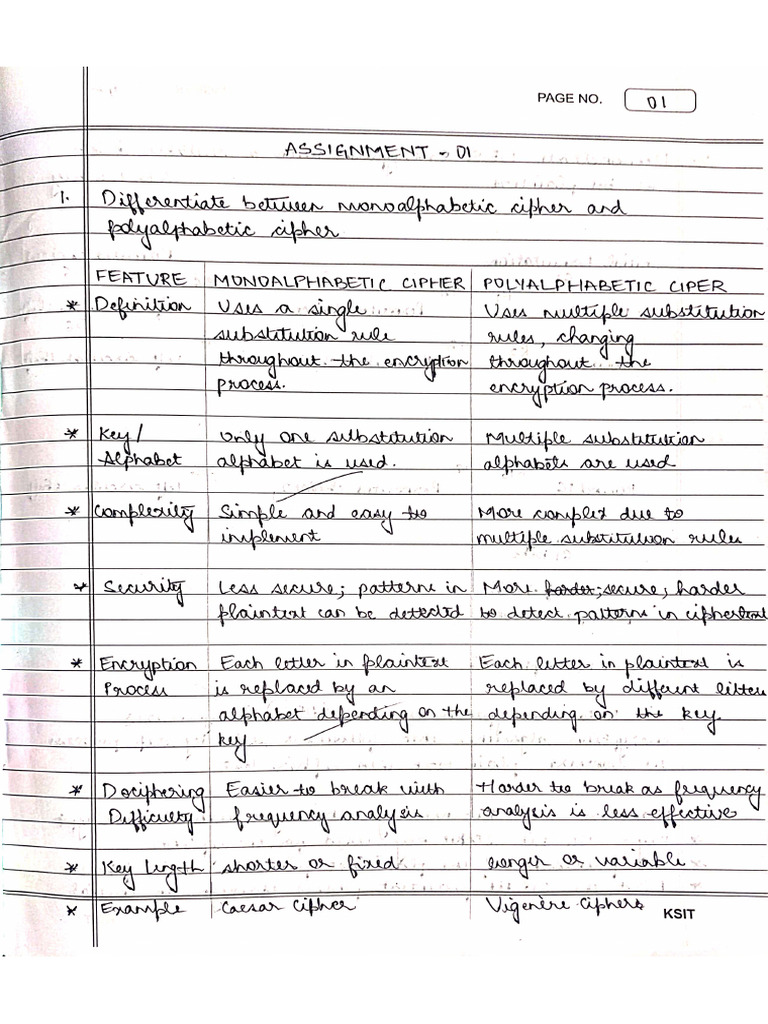 PAGE NO. 01
ASSIGNMENT - 01
1. Differentiate between monoalphabetic cipher and
polyalphabetic cipher
FEATURE MONOALPHABETIC CIPHER POLYALPHABETIC CIPER
* Definition Uses a single Uses multiple substitution
substitution rule rules, changing
throughout the encryption throughout the
process. encryption process.
* Key/ Only one substitution Multiple substitution
Alphabet alphabet is used. alphabets are used
* Complexity Simple and easy to More complex due to
implement multiple substitution rules
* Security Less secure; patterns in More harder; secure, harder
plaintext can be detected to detect patterns in ciphertext
* Encryption Each letter in plaintext Each letter in plaintext is
Process is replaced by an replaced by different letters
alphabet depending on the depending on the key.
key
* Deciphering Easier to break with Harder to break as frequency
Difficulty frequency analysis analysis is less effective
* Key length shorter or fixed Longer or variable
* Example Caesar Cipher Vigenère Ciphers
KSIT